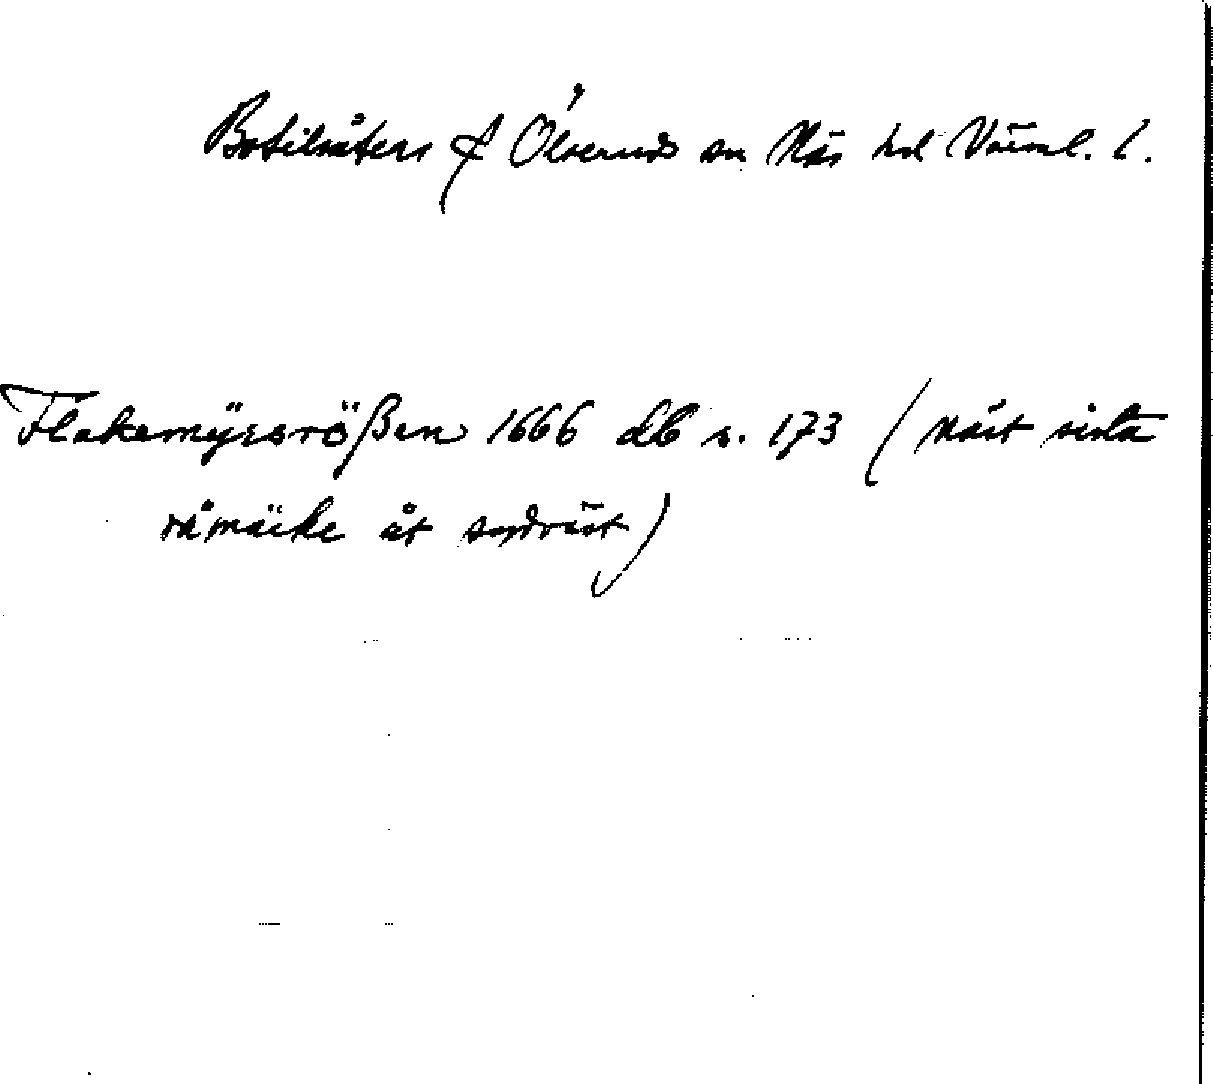 Botilsäters f Ölseruds sn Näs hd Värml. l.
Flakemÿrsrößen 1666 db s. 173 (näst sista
råmärke åt sydväst)